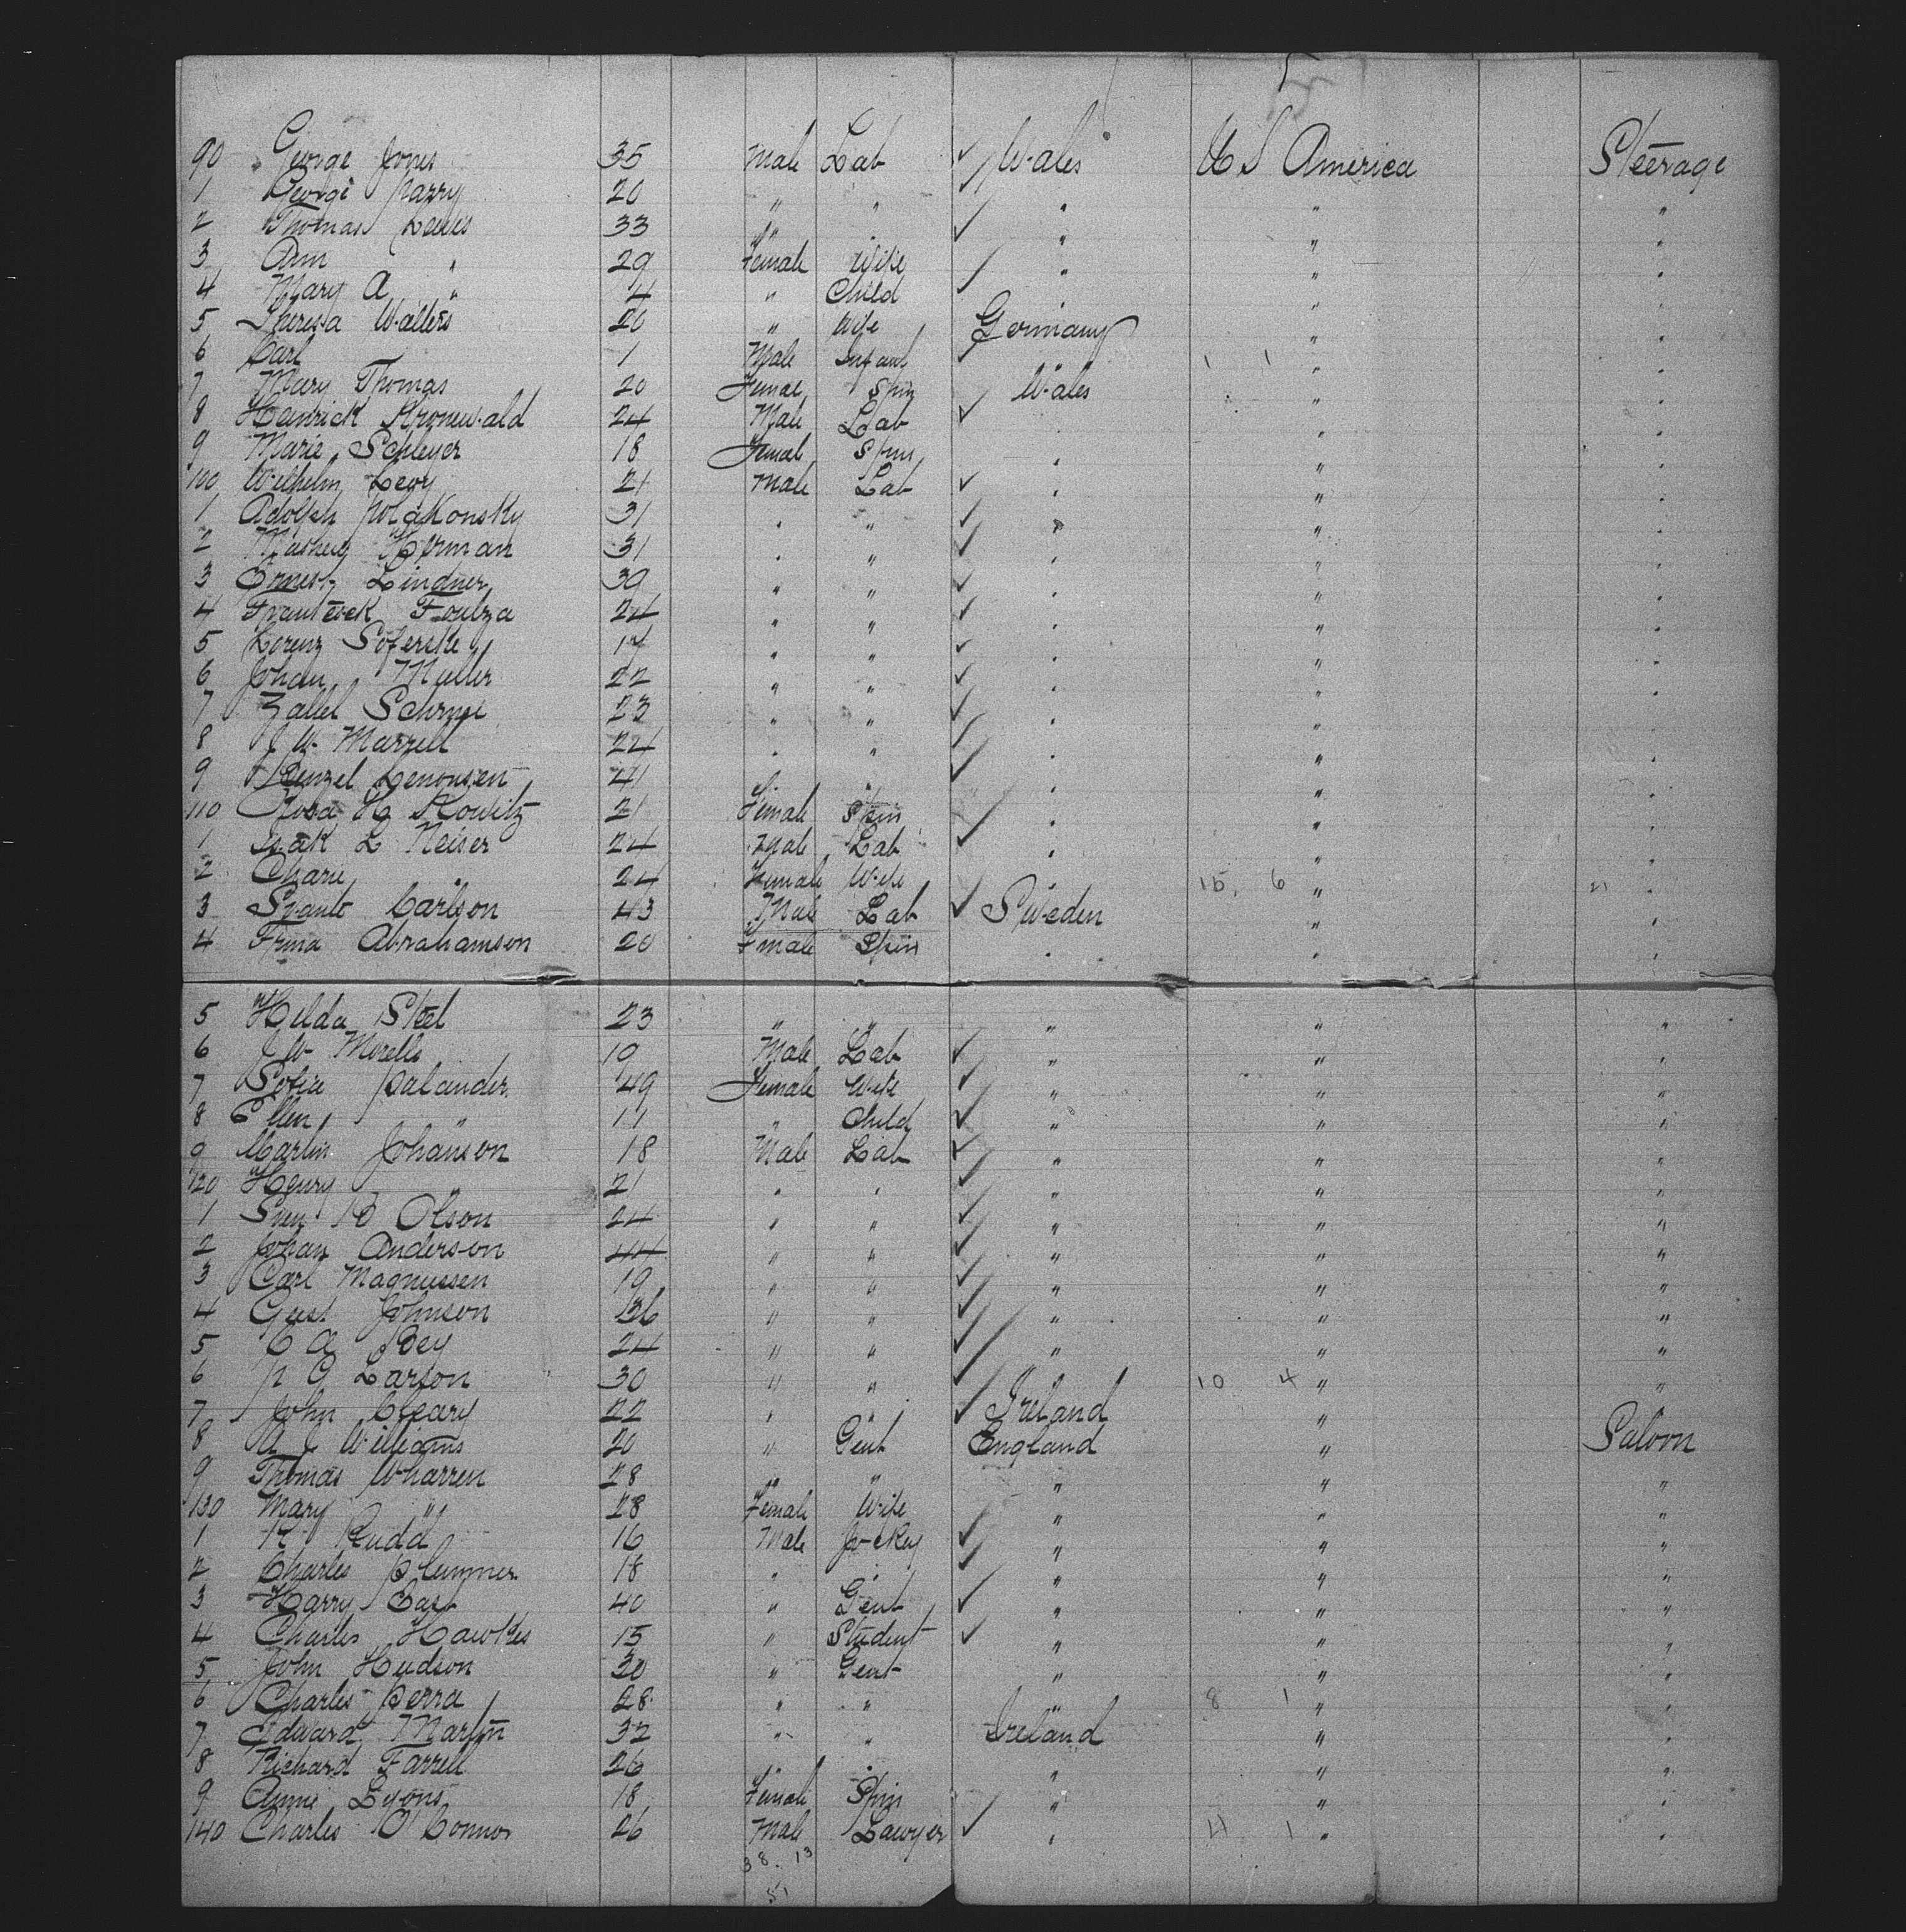 90 George Jones 35 Male Lab ✓ Wales U S America Steerage
1 George Parry 20 " " ✓ " " "
2 Thomas Lewis 33 " " ✓ " " "
3 Ann " 29 Female Wife " " "
4 Mary A " 4 " Child ✓ " " "
5 Theresa Walters 26 " Wife Germany " "
6 Carl 1 Male Infant ✓ 1 1 " "
7 Mary Thomas 20 Female Spin Wales " "
8 Heinrick Kronewald 24 Male Lab ✓ " " "
9 Marie Schleyer 18 Female Spin " " "
100 Wilhelm Levy 21 Male Lab ✓ " " "
1 Adolph Polakonsky 31 " " ✓ " " "
2 Herman 31 " " ✓ " " "
3 Ernest Lindner 39 " " ✓ " " "
4 24 " " ✓ " " "
5 Lorenz Soferske 17 " " ✓ " " "
6 Johan Muller 22 " " ✓ " " "
7 23 " " ✓ " " "
8 J W Marrell 24 " " ✓ " " "
9 41 " " ✓ " " "
110 Rosa H Kowitz 21 Female Spin " " "
1 Isak L Neiser 24 Male Lab ✓ " " "
2 Charie " 24 Female Wife 15 6 " 21 "
3 Svante Carlson 43 Male Lab ✓ Sweden " "
4 Abrahamson 20 Female Spin " " "
5 Hilda Steel 23 " " " " "
6 J W Morells 19 Male Lab ✓ " " "
7 Sofia Palander 49 Female Wife ✓ " " "
8 Ellen " 11 " Child ✓ " " "
9 Martin Johanson 18 Male Lab ✓ " " "
120 Henry " 21 " " ✓ " " "
1 Sven B Olson 24 " " ✓ " " "
2 Johan Anderson 44 " " ✓ " " "
3 Carl Magnussen 19 " " ✓ " " "
4 Gust Johnson 36 " " ✓ " " "
5 C A Bey 24 " " ✓ " " "
6 P G Larson 30 " " ✓ " 10 4 " "
7 John Cleary 22 " " ✓ Ireland " "
8 A J Williams 20 " Gent England " Saloon
9 Thomas Wharren 28 " " " " "
130 Mary " 28 Female Wife " " "
1 Rudd 16 Male Jockey ✓ " " "
2 Charles Plummer 18 " " ✓ " " "
3 Harry East 40 " Gent ✓ " " "
4 Charles Hawkes 15 " Student ✓ " " "
5 John Hudson 30 " Gent " " "
6 Charles Perra 28 " " " 8 1 " "
7 Edward Martin 32 " " Ireland " "
8 Richard Farrell 26 " " " " "
9 Annie Lyons 18 Female Spin " " "
140 Charles O'Connor 26 Male Lawyer ✓ " 4 1 " "
38. 13
51